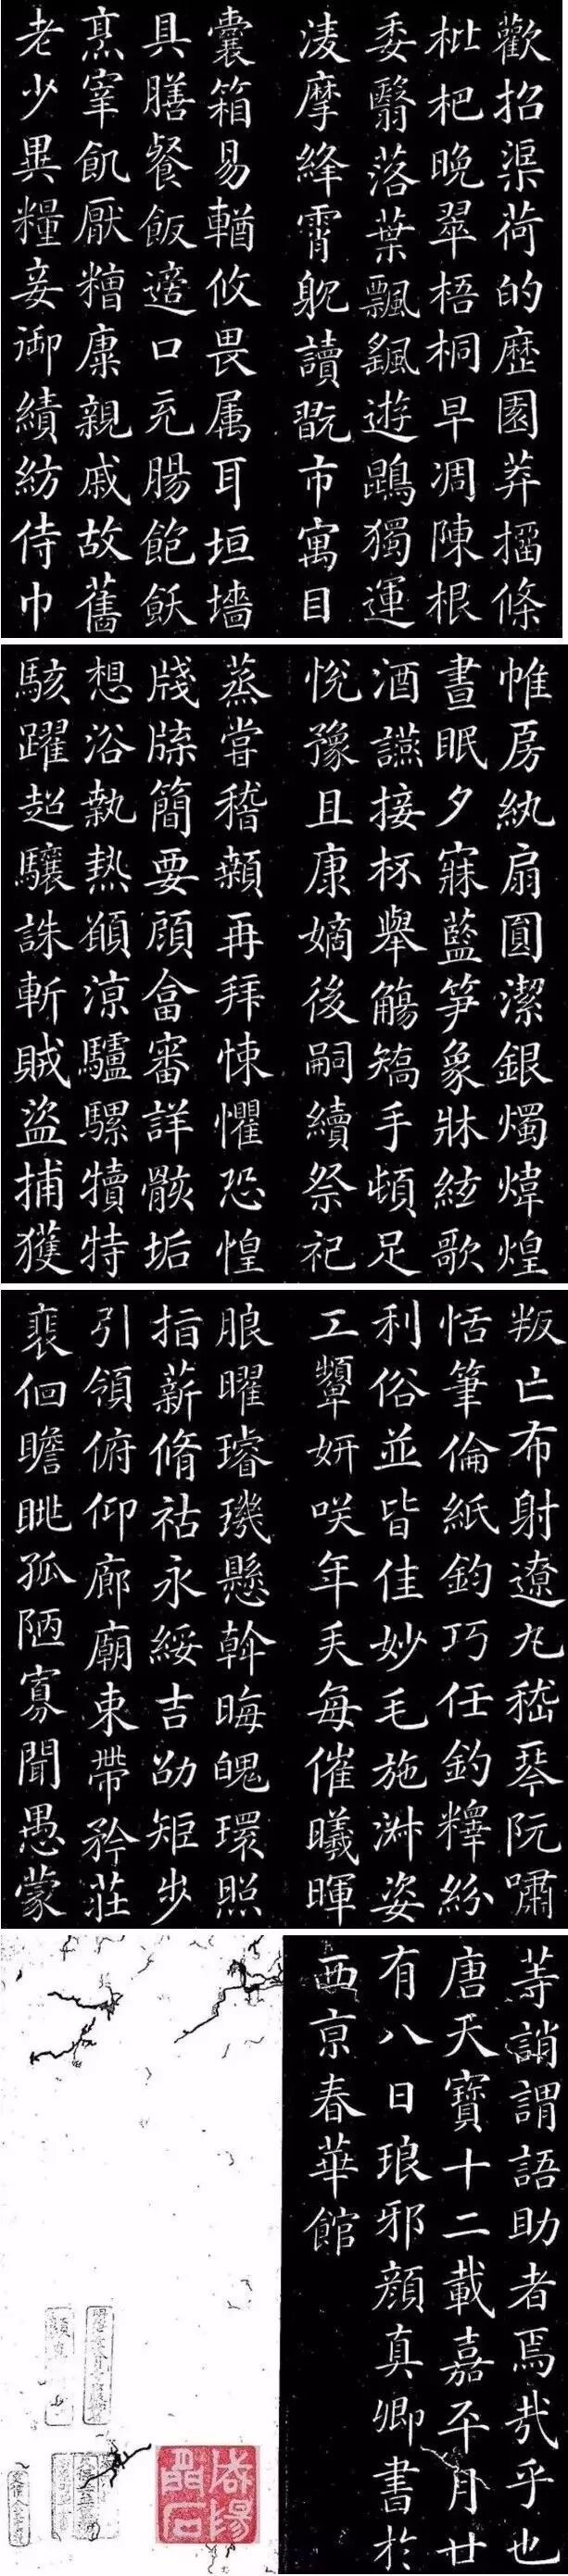 歡招渠荷的歷園莽㩅條
枇杷晚翠梧桐早凋陳根
委翳落葉飄飖遊鵾獨運
淩摩絳霄躭讀翫市寓目
囊箱易輶攸畏属耳垣墻
具膳餐飯適口充腸飽飫
烹宰飢厭糟糠親戚故舊
老少異糧妾御績紡侍巾
帷房紈扇圓潔銀燭煒煌
晝眠夕寐藍笋象牀絃歌
酒讌接杯舉觴矯手頓足
悅豫且康嫡後嗣續祭祀
蒸嘗稽顙再拜悚懼恐惶
牋牒簡要顧畣審詳骸垢
想浴執熱願涼驢騾犢特
駭躍超驤誅斬賊盜捕獲
叛亡布射遼丸嵇琴阮嘯
恬筆倫紙鈞巧任釣釋紛
利俗並皆佳妙毛施淑姿
工顰妍咲年矢每催曦暉
朗曜璿璣懸斡晦魄環照
指薪脩祜永綏吉劭矩步
引領俯仰廊廟束帶矜莊
裴佪瞻眺孤陋寡聞愚蒙
等誚謂語助者焉哉乎也
唐天寶十二載嘉平月廿
有八日琅邪顏真卿書於
西京春華館